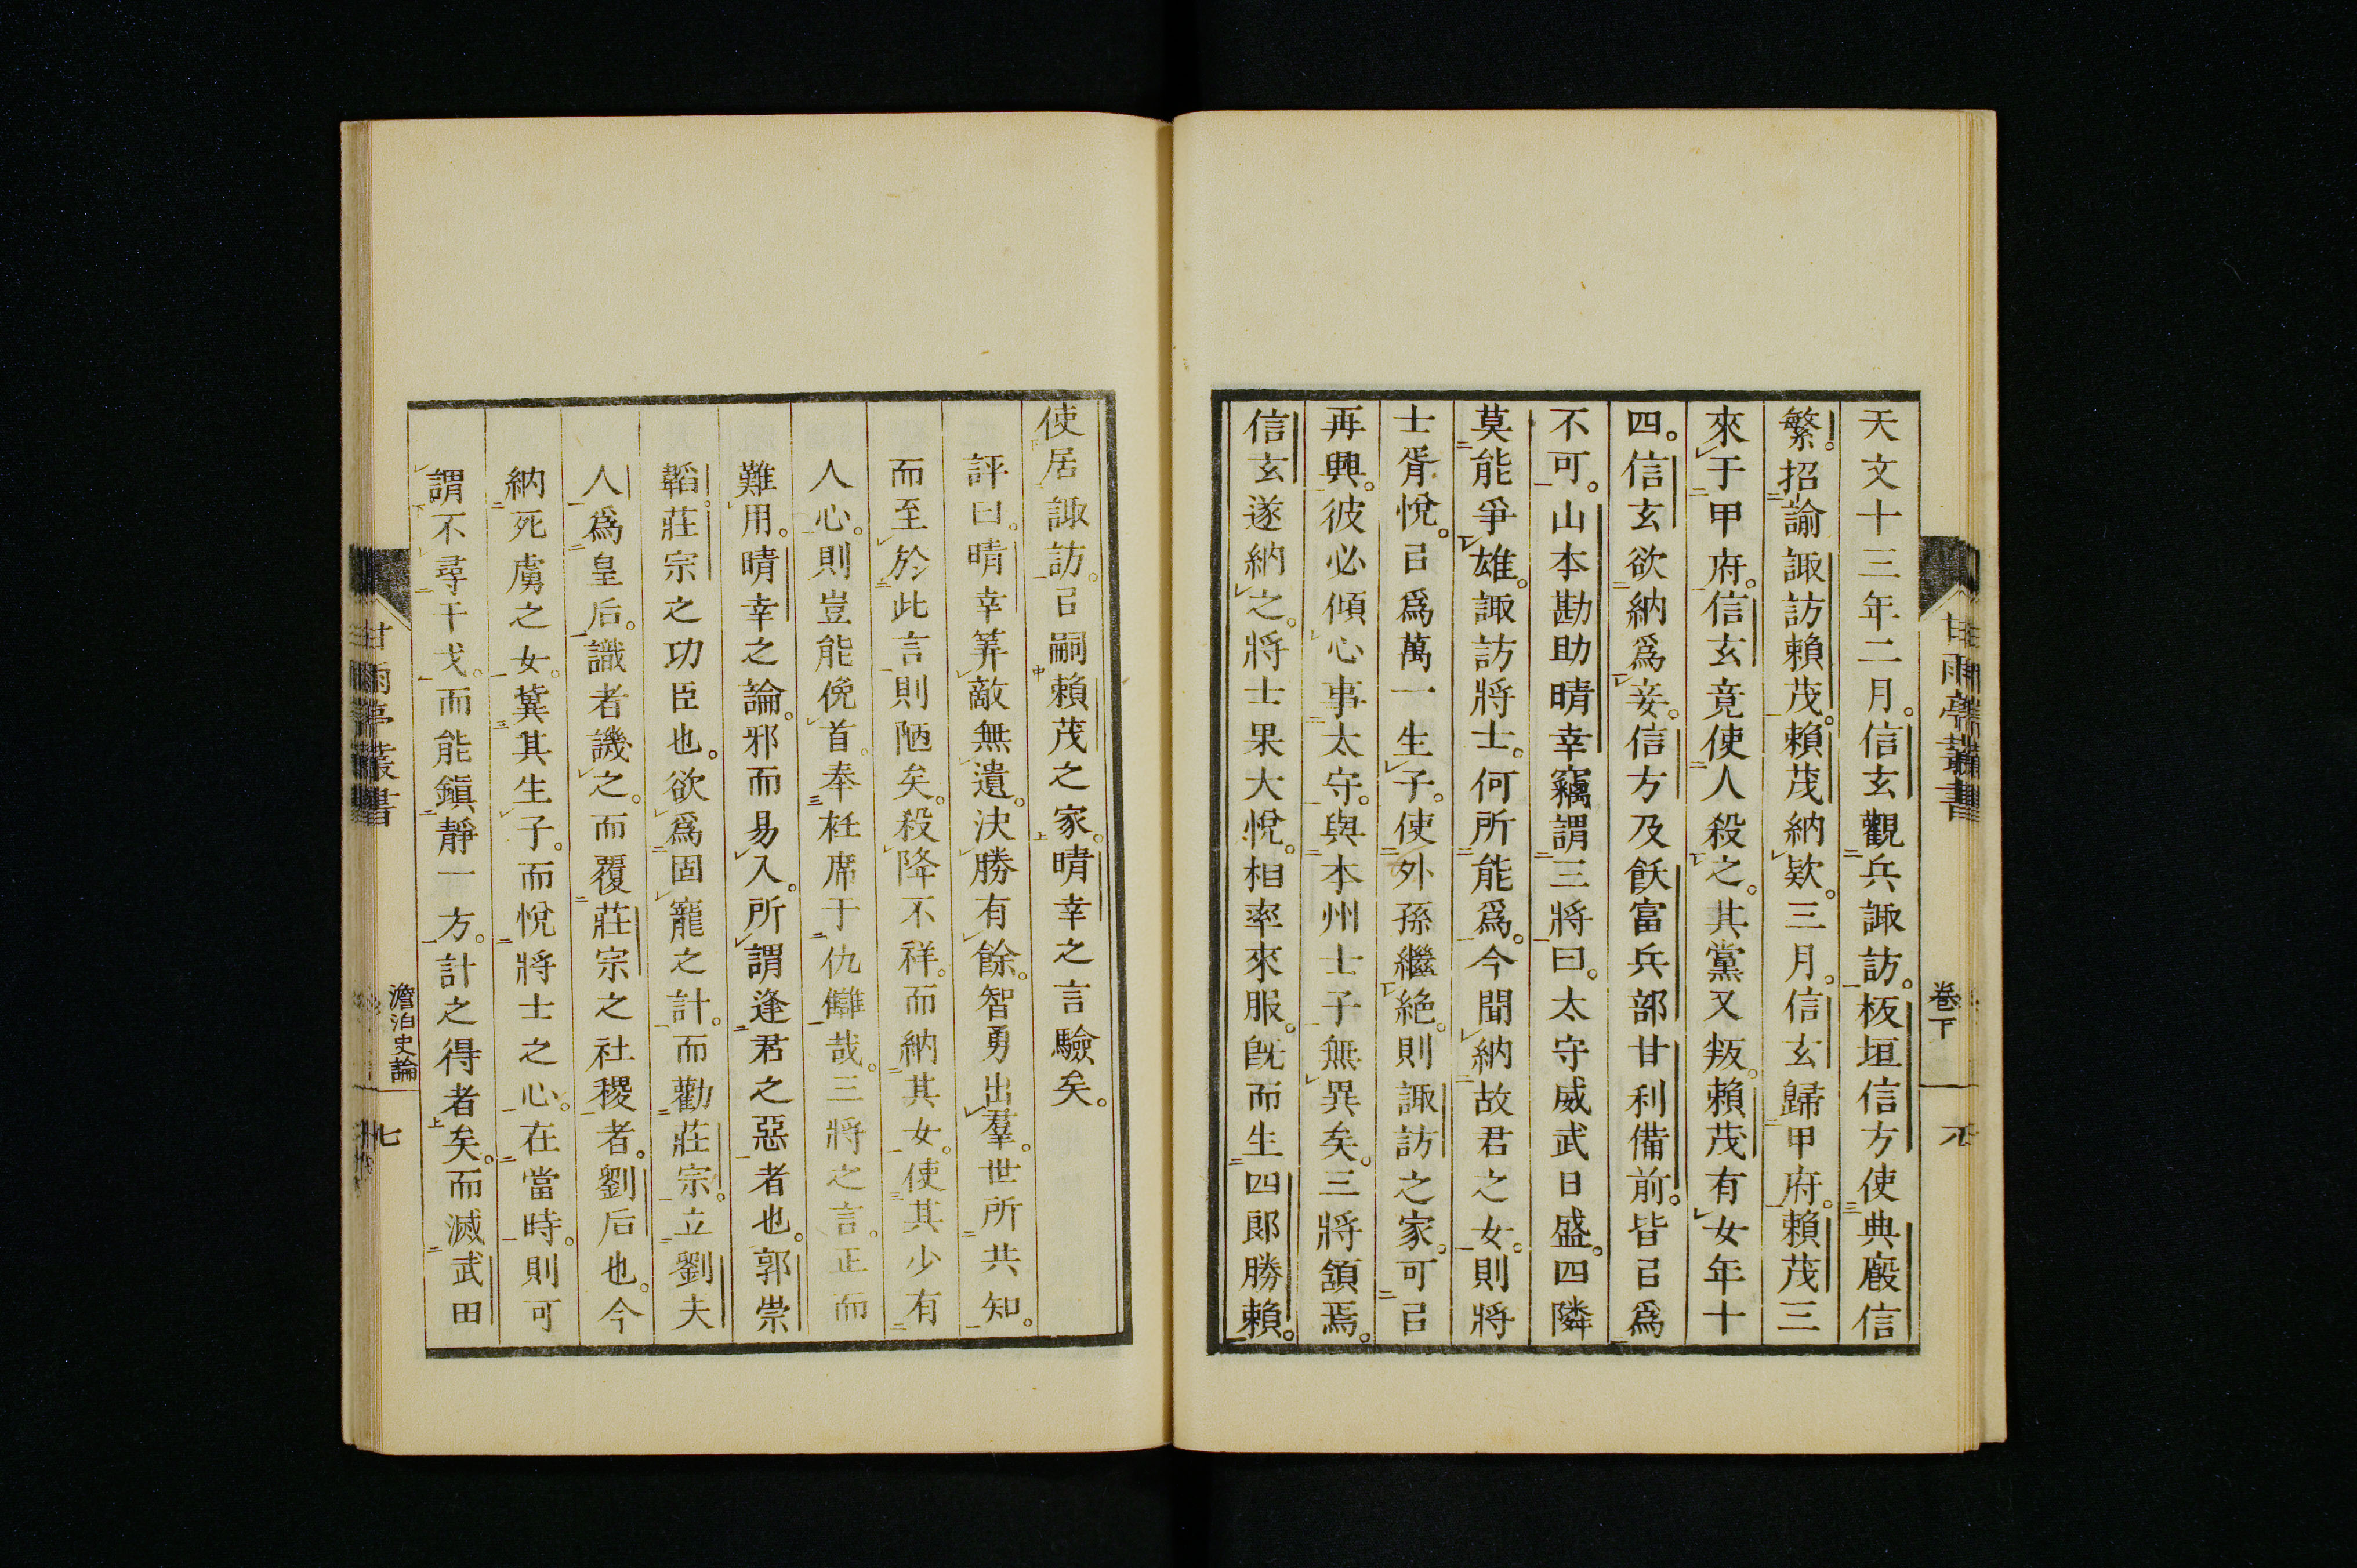 天文十三年二月。信玄觀兵諏訪。板垣信方使典廐信
繁。招諭諏訪賴茂。賴茂納欵。三月。信玄歸甲府。賴茂三
來于甲府。信玄竟使人殺之。其黨又叛。賴茂有女年十
四。信玄欲納爲妾。信方及飫富兵部甘利備前。皆㠯爲
不可。山本勘助晴幸竊謂三將曰。太守威武日盛。四隣
莫能爭雄。諏訪將士。何所能爲。今聞納故君之女。則將
士胥悅。㠯爲萬一生子。使外孫繼絶。則諏訪之家。可㠯
再興。彼必傾心事太守。與本州士子無異矣。三將頷焉。
信玄遂納之。將士果大悅。相率來服。旣而生四郎勝賴。
卷下
甘雨亭叢書
使居諏訪。㠯嗣賴茂之家。晴幸之言驗矣。
評曰。晴幸筭敵無遺。決勝有餘。智勇出羣。世所共知。
而至於此言則陋矣。殺降不祥。而納其女。使其少有
人心。則豈能俛首奉袵席于仇讎哉。三將之言。正而
難用。晴幸之論。邪而易入。所謂逢君之惡者也。郭崇
韜。莊宗之功臣也。欲爲固寵之計。而勸莊宗。立劉夫
人爲皇后。識者譏之。而覆莊宗之社稷者。劉后也。今
納死虜之女。冀其生子。而悅將士之心。在當時。則可
謂不尋干戈。而能鎭靜一方。計之得者矣。而滅武田
甘雨亭叢書
澹泊史論
七